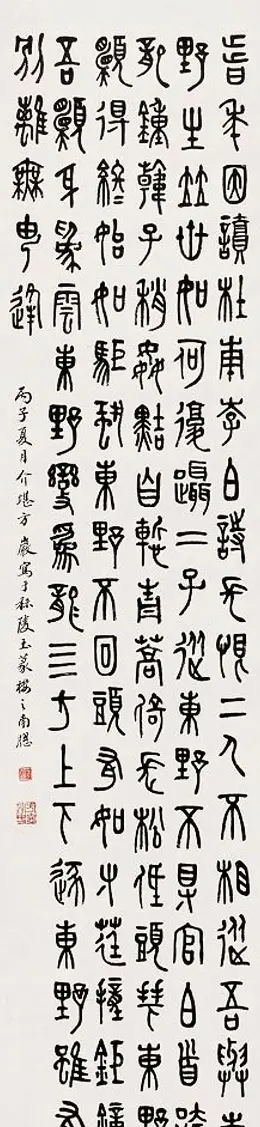 昔年因讀杜甫李白詩長恨二人不相從吾與東
野生竝世如何復躡二子從東野不得官白首誇
龍鐘韓子稍姦黠自慙青蒿倚長松低頭拜東野
願得終始如駏蛩東野不回頭有如寸莛撞鉅鐘
吾願身爲雲東野變爲龍亖方上下逐東野雖有
別離無由逢
丙子夏月介堪方巖寫于秣陵玉篆樓之南牕